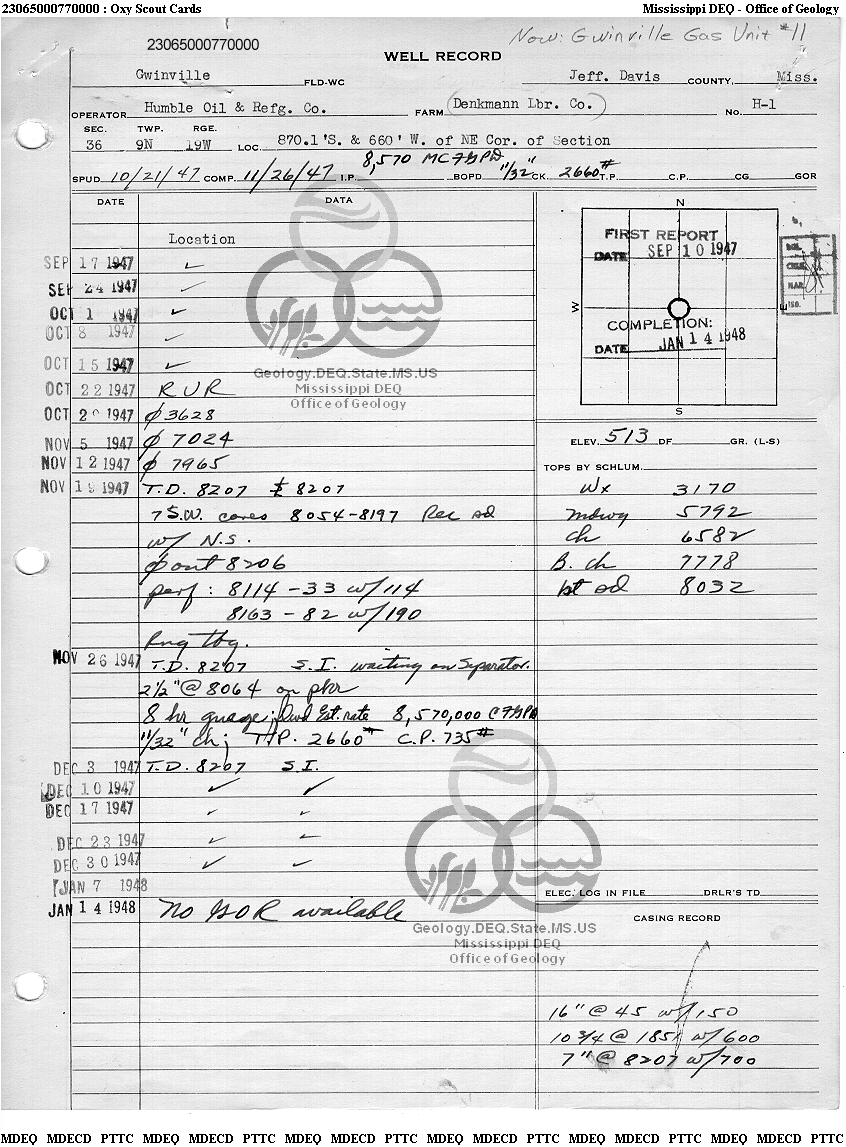 23065000770000 : Oxy Scout Cards Mississippi DEQ - Office of Geology
23065000770000 Now: Gwinville Gas Unit #11
WELL RECORD
Gwinville FLD-WC Jeff. Davis COUNTY, Miss.
OPERATOR Humble Oil & Refg. Co. FARM (Denkmann Lbr. Co.) No. H-1
SEC. TWP. RGE.
36 9N 19W LOC. 870.1'S. & 660' W. of NE Cor. of Section
SPUD 10/21/47 COMP. 11/26/47 I.P. 8,570 MCFGPD BOPD 11/32" CK. 2660# T.P. C.P. CG GOR
DATE DATA
Location
SEP 17 1947 ✓
SEP 24 1947 ✓
OCT 1 1947 ✓
OCT 8 1947 ✓
OCT 15 1947 ✓
OCT 22 1947 RUR
OCT 1947 φ 3628
NOV 5 1947 φ 7024
NOV 12 1947 φ 7965
NOV 19 1947 T.D. 8207 8207
7 S.W. cores 8054-8197 Rec sd
w/ N.S.
φ out 8206
perf: 8114-33 w/114
8163-82 w/190
Rng tbg.
NOV 26 1947 T.D. 8207 S.I. waiting on Separator.
2½" @ 8064 on pkr
8 hr guage; Est. rate 8,570,000 CFGPD
11/32" ch; T.P. 2660# C.P. 735#
DEC 3 1947 T.D. 8207 S.I.
DEC 10 1947 ✓ ✓
DEC 17 1947 ✓ ✓
DEC 23 1947 ✓ ✓
DEC 30 1947 ✓ ✓
JAN 7 1948
JAN 14 1948 No GOR available
N
FIRST REPORT
DATE SEP 10 1947
W E
COMPLETION:
DATE JAN 14 1948
S
ELEV. 513 DF GR. (L-S)
TOPS BY SCHLUM.
Wx 3170
mdwy 5792
ch 6582
B. ch 7778
bt sd 8032
ELEC. LOG IN FILE DRLR'S TD
CASING RECORD
16" @ 45 w/150
10 3/4 @ 1851 w/600
7" @ 8207 w/700
Geology.DEQ.State.MS.US
Mississippi DEQ
Office of Geology
Geology.DEQ.State.MS.US
Mississippi DEQ
Office of Geology
MDEQ MDECD PTTC MDEQ MDECD PTTC MDEQ MDECD PTTC MDEQ MDECD PTTC MDEQ MDECD PTTC MDEQ MDECD PTTC